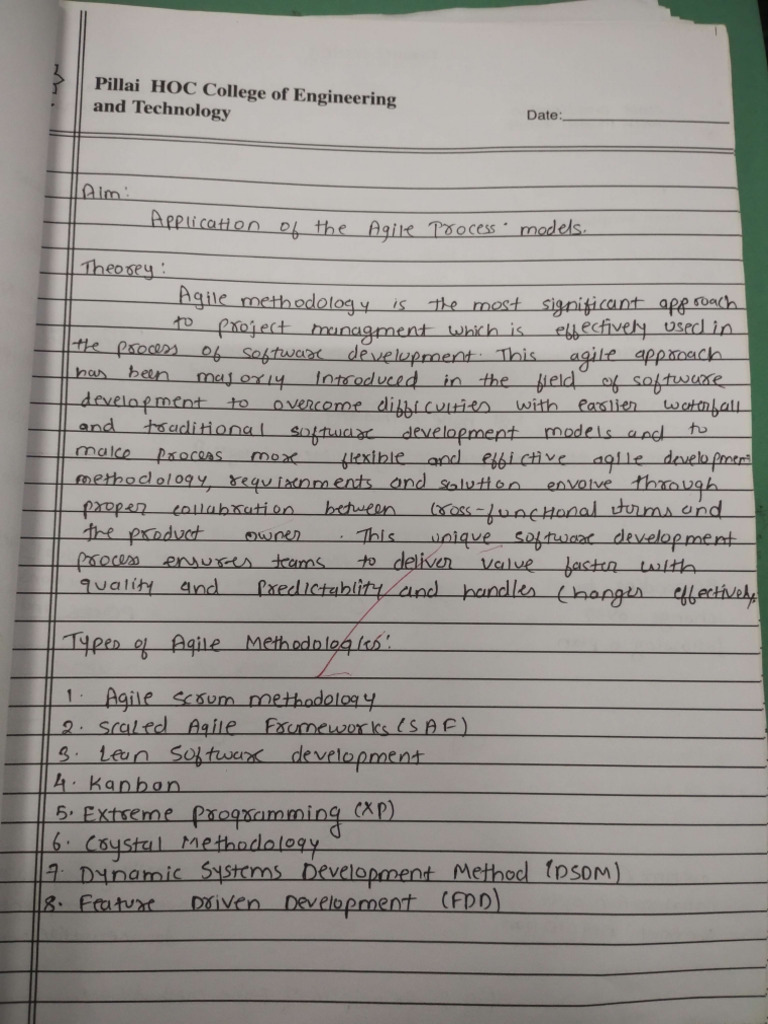 Pillai HOC College of Engineering
and Technology
Date:
Aim:
Application of the Agile Process models.
Theorey:
Agile methodology is the most significant approach
to project managment which is effectively used in
the process of software development. This agile approach
has been majorly Introduced in the field of software
development to overcome difficulties with earlier waterfall
and traditional software development models and to
make process more flexible and effictive agile developmen
methodology, requirenments and solution envolve through
proper collabration between cross-functional turms and
the product owner. This unique software development
process ensures teams to deliver value faster with
quality and Predictablity and handles changes effectively.
Types of Agile Methodologies:
1. Agile scrum methodology
2. scaled Agile Frameworks (SAF)
3. Lean Software development
4. Kanban
5. Extreme programming (XP)
6. Crystal Methodology
7. Dynamic Systems Development Method (DSDM)
8. Feature Driven Development (FDD)